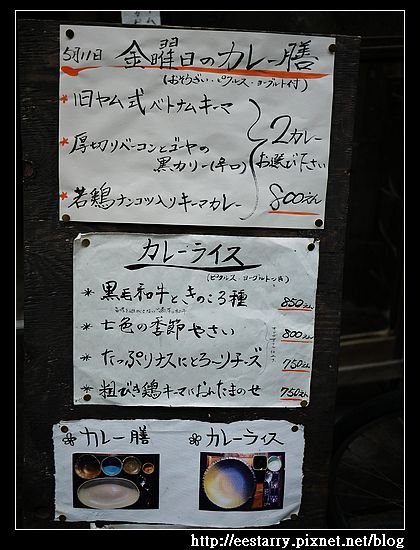 5月11日 金曜日のカレー膳
(おそうざい・ピクルス・ヨーグルト付)
*旧ヤム式ベトナムキーマ
*厚切りベーコンとゴーヤの
黒カリー(辛口)
*若鶏ナンコツ入りキーマカレー
2カレー
お選び下さい
800えん
カレーライス
(ピクルス・ヨーグルトつき)
*黒毛和牛ときのこ3種 850えん
*七色の季節やさい 800えん
*たっぷりナスにとろーりチーズ 750えん
*粗びき鶏キーマにおんたまのせ 750えん
カレー膳
カレーライス
http://eestarry.pixnet.net/blog